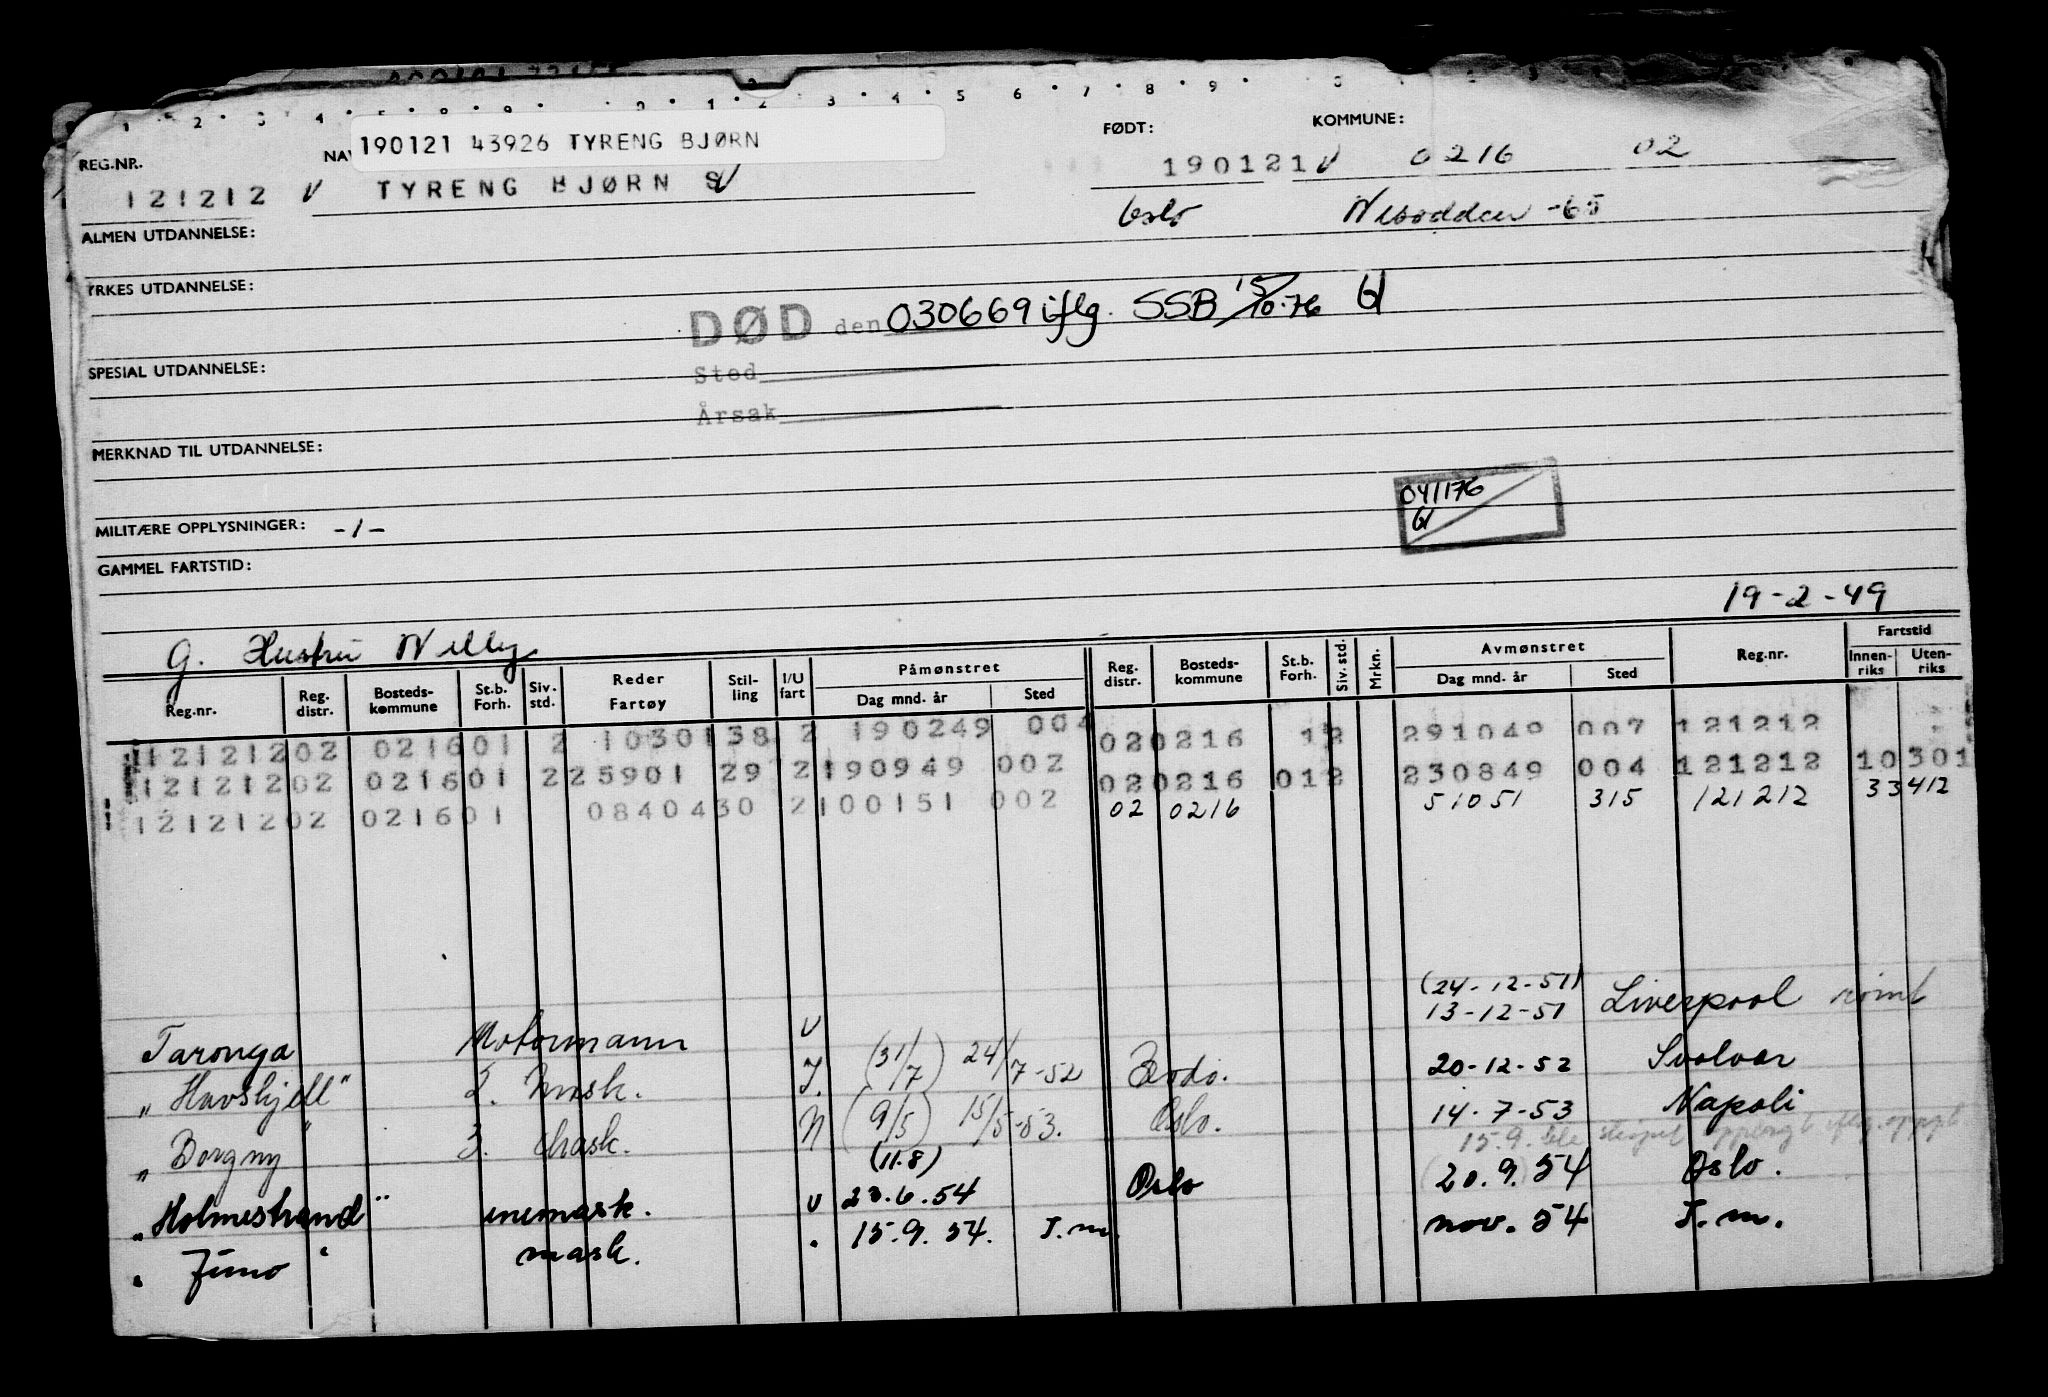 1 2 3 4 5 8 9 0 1 2 3 4 5 6 7 8 9
190121 43926 TYRENG BJØRN
REG.NR. NAV FØDT: KOMMUNE:
121212 TYRENG BJØRN S 190121 0216 02
ALMEN UTDANNELSE: Oslo Nesodden -65
YRKES UTDANNELSE:
DØD den 030669 iflg. SSB 15/10-76
SPESIAL UTDANNELSE: Sted
Årsak
MERKNAD TIL UTDANNELSE:
041176
MILITÆRE OPPLYSNINGER: -/-
GAMMEL FARTSTID:
19-2-49
G. Hustru Nelly
Reg.nr. Reg. distr. Bosteds-kommune St.b. Forh. Siv. std. Reder Fartøy Stil-ling I/U fart Påmønstret Dag mnd. år Sted Reg. distr. Bosteds-kommune St.b. Forh. Siv. std. Mrkn. Avmønstret Dag mnd. år Sted Reg.nr. Fartstid Innen-riks Uten-riks
121212 02 0216 01 2 10301 38 2 190249 004 02 0216 12 291049 007 121212
121212 02 0216 01 2 25901 29 2 190949 002 02 0216 012 230849 004 121212 10 301
121212 02 0216 01 08404 30 2 100151 002 02 0216 51051 315 121212 33 412
(24-12-51)
Taronga Motormann U 13-12-51 Liverpool rømt
"Havskjell" 2. mask. I. (31/7) 24/7-52 Bodø. 20-12-52 Svolvær
"Borgny" 3. mask. N (9/5) 15/5-53. Oslo. 14-7-53 Napoli
(11.8) 15.9. ble
"Holmestrand" enemask. U 23.6.54 Oslo 20.9.54 Oslo.
" Juno " mask. " 15.9.54. T.m. nov. 54 T.m.